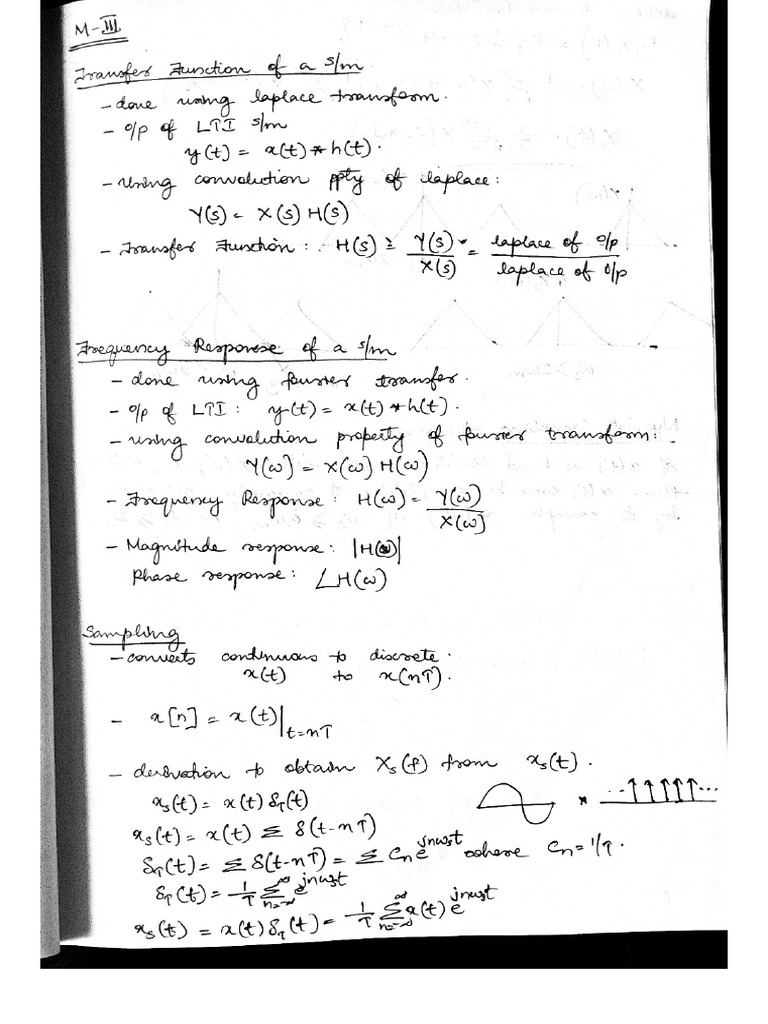 M-III
Transfer Function of a s/m
- done using laplace transform.
- o/p of LTI s/m
y(t) = x(t) * h(t).
- using convolution ppty of laplace:
Y(s) = X(s) H(s)
- Transfer Function: H(s) = Y(s)/X(s) = laplace of o/p / laplace of o/p
Frequency Response of a s/m
- done using fourier transfer.
- o/p of LTI: y(t) = x(t) * h(t).
- using convolution property of fourier transform:
Y(ω) = X(ω) H(ω)
- Frequency Response: H(ω) = Y(ω)/X(ω)
- Magnitude response: |H(ω)|
Phase response: ∠H(ω)
Sampling
- converts continuous to discrete.
x(t) to x(nT).
- x[n] = x(t)|t=nT
- derivation to obtain Xs(f) from xs(t).
xs(t) = x(t) δT(t)
xs(t) = x(t) Σ δ(t-nT)
δT(t) = Σ δ(t-nT) = Σ Cn e^jnωst where Cn = 1/T.
δT(t) = 1/T Σ n=-∞ ∞ e^jnωst
xs(t) = x(t) δT(t) = 1/T Σ n=-∞ ∞ x(t) e^jnωst